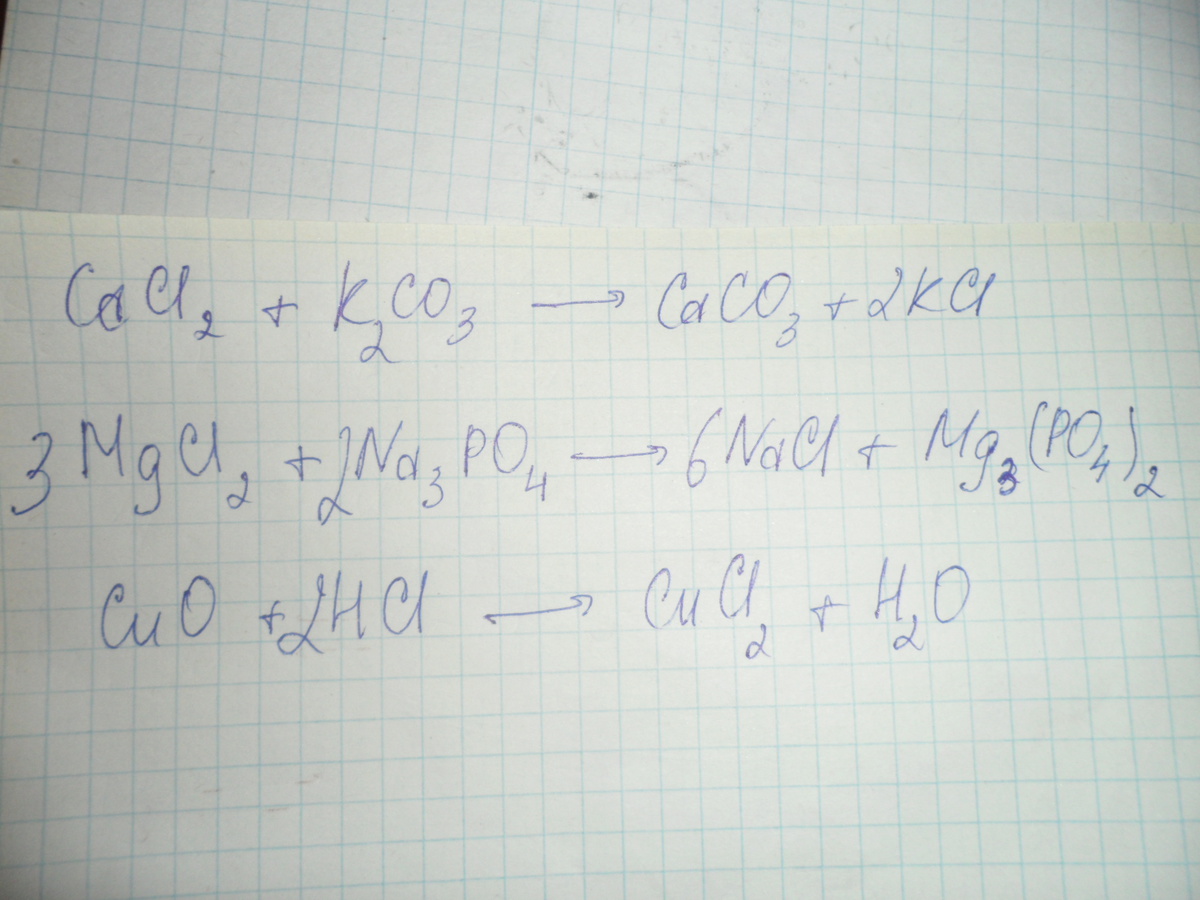 CaCl₂ + K₂CO₃ → CaCO₃ + 2KCl
3MgCl₂ + 2Na₃PO₄ → 6NaCl + Mg₃(PO₄)₂
CuO + 2HCl → CuCl₂ + H₂O